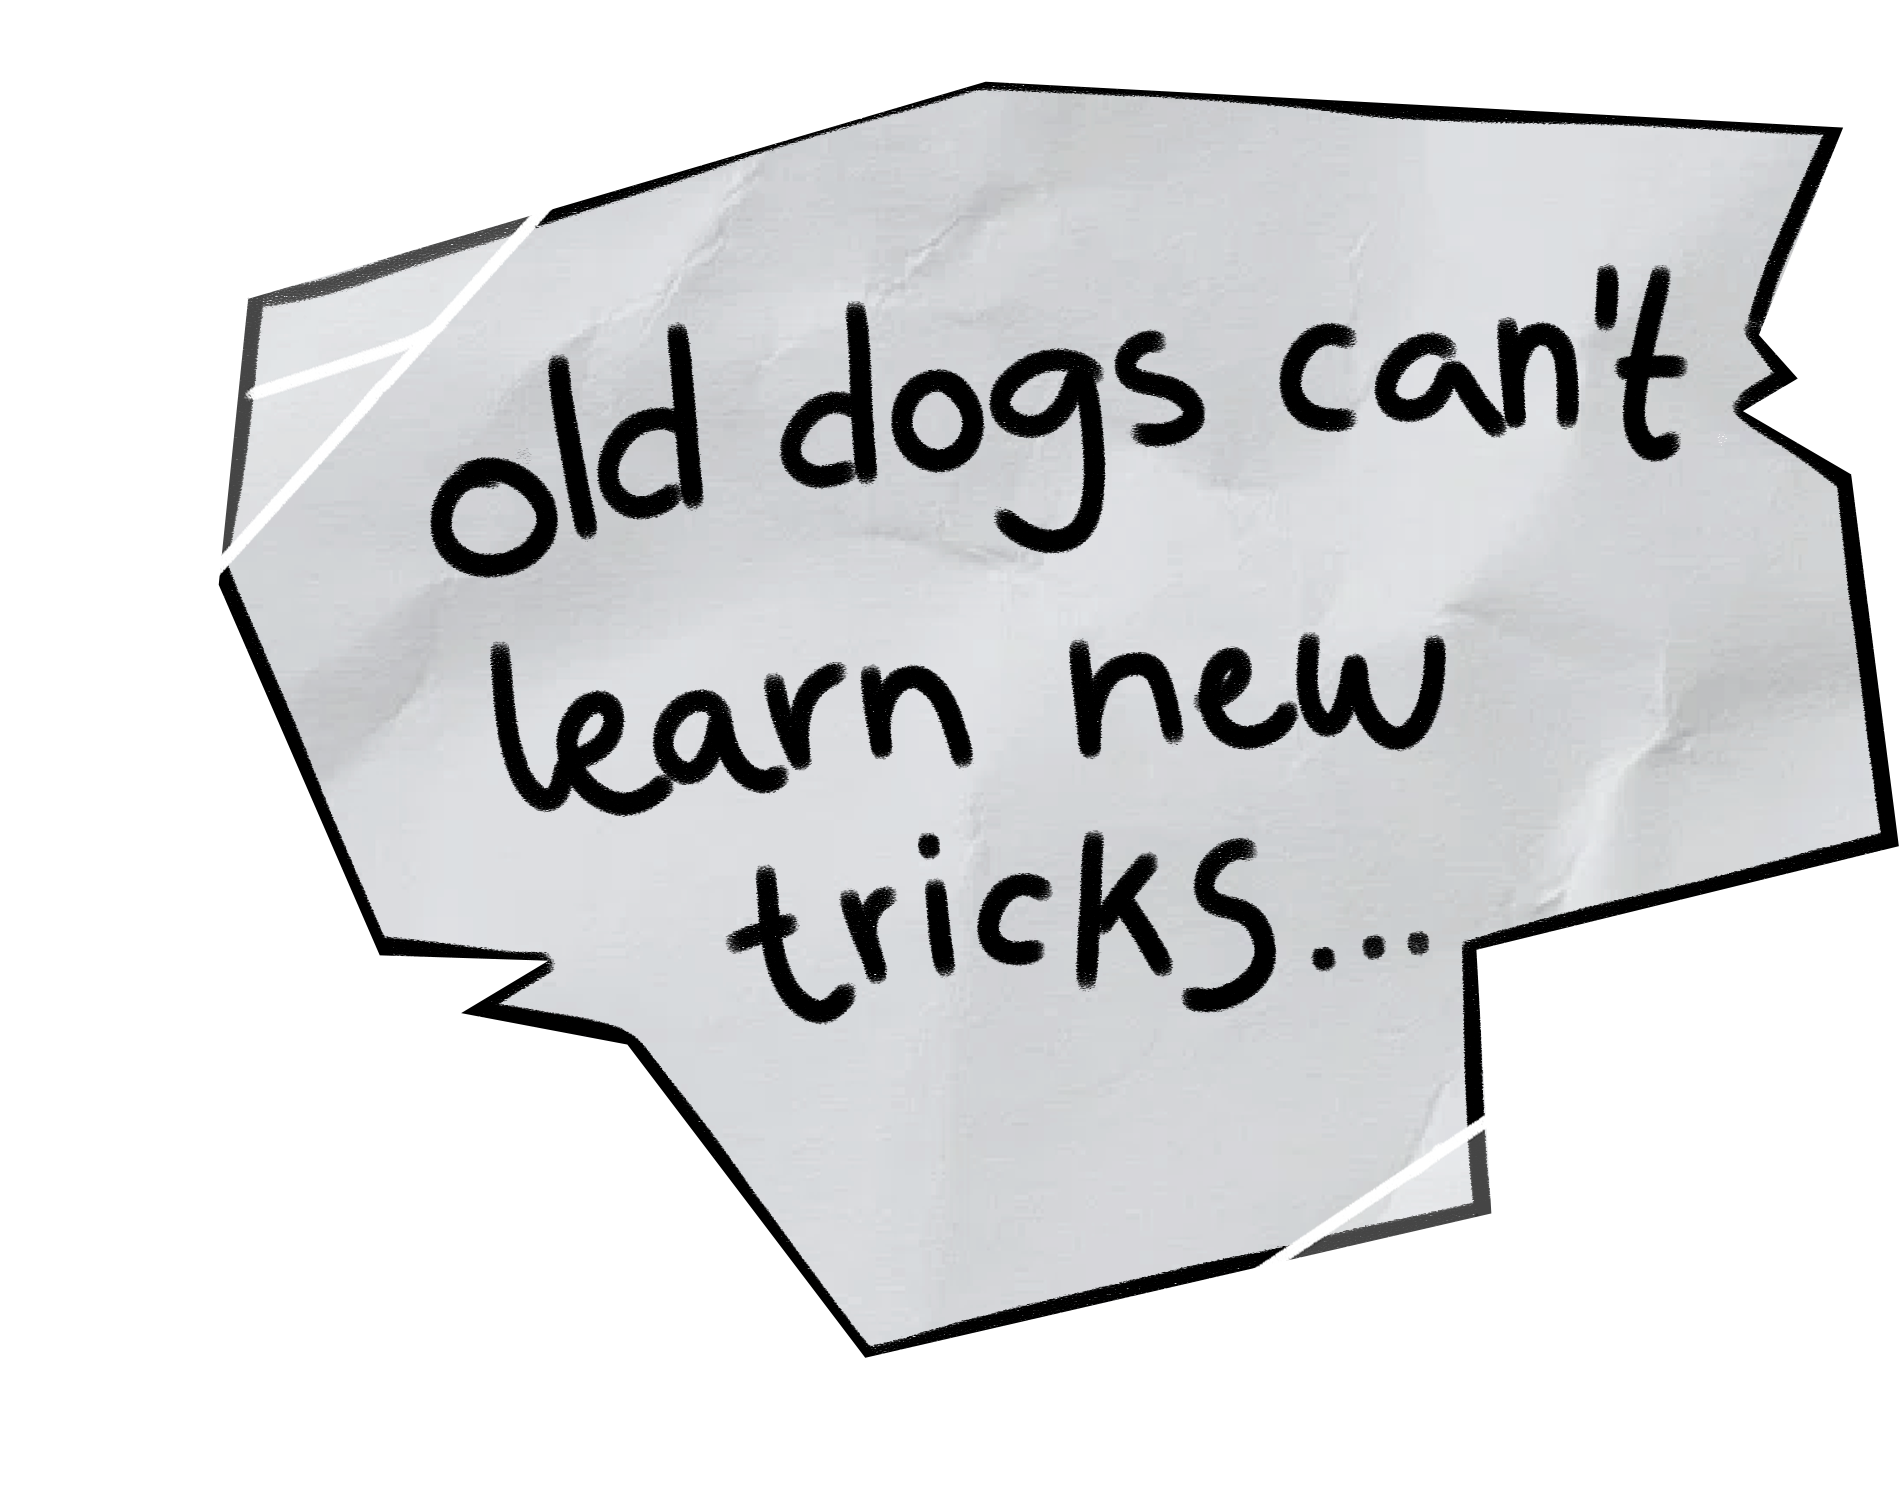 old dogs can't
learn new
tricks...